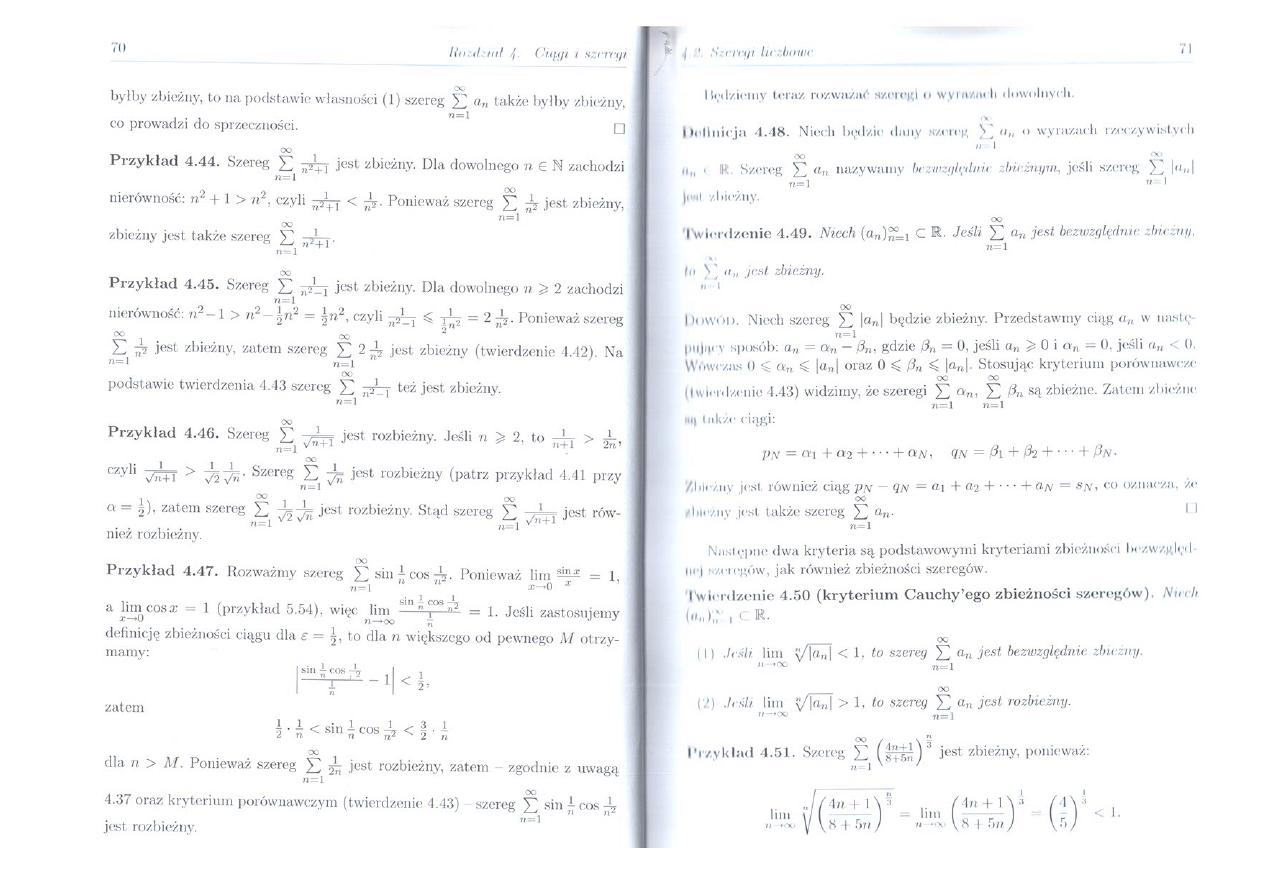 70 Rozdział 4. Ciągi i szeregi
byłby zbieżny, to na podstawie własności (1) szereg $\sum_{n=1}^{\infty} a_n$ także byłby zbieżny,
co prowadzi do sprzeczności. □
Przykład 4.44. Szereg $\sum_{n=1}^{\infty} \frac{1}{n^2+1}$ jest zbieżny. Dla dowolnego $n \in \mathbb{N}$ zachodzi
nierówność: $n^2 + 1 > n^2$, czyli $\frac{1}{n^2+1} < \frac{1}{n^2}$. Ponieważ szereg $\sum_{n=1}^{\infty} \frac{1}{n^2}$ jest zbieżny,
zbieżny jest także szereg $\sum_{n=1}^{\infty} \frac{1}{n^2+1}$.
Przykład 4.45. Szereg $\sum_{n=1}^{\infty} \frac{1}{n^2-1}$ jest zbieżny. Dla dowolnego $n \geqslant 2$ zachodzi
nierówność: $n^2 - 1 > n^2 - \frac{1}{2}n^2 = \frac{1}{2}n^2$, czyli $\frac{1}{n^2-1} \leqslant \frac{1}{\frac{1}{2}n^2} = 2\frac{1}{n^2}$. Ponieważ szereg
$\sum_{n=1}^{\infty} \frac{1}{n^2}$ jest zbieżny, zatem szereg $\sum_{n=1}^{\infty} 2\frac{1}{n^2}$ jest zbieżny (twierdzenie 4.42). Na
podstawie twierdzenia 4.43 szereg $\sum_{n=1}^{\infty} \frac{1}{n^2-1}$ też jest zbieżny.
Przykład 4.46. Szereg $\sum_{n=1}^{\infty} \frac{1}{\sqrt{n+1}}$ jest rozbieżny. Jeśli $n \geqslant 2$, to $\frac{1}{n+1} > \frac{1}{2n}$,
czyli $\frac{1}{\sqrt{n+1}} > \frac{1}{\sqrt{2}}\frac{1}{\sqrt{n}}$. Szereg $\sum_{n=1}^{\infty} \frac{1}{\sqrt{n}}$ jest rozbieżny (patrz przykład 4.41 przy
$\alpha = \frac{1}{2}$), zatem szereg $\sum_{n=1}^{\infty} \frac{1}{\sqrt{2}}\frac{1}{\sqrt{n}}$ jest rozbieżny. Stąd szereg $\sum_{n=1}^{\infty} \frac{1}{\sqrt{n+1}}$ jest rów-
nież rozbieżny.
Przykład 4.47. Rozważmy szereg $\sum_{n=1}^{\infty} \sin\frac{1}{n}\cos\frac{1}{n^2}$. Ponieważ $\lim_{x\to 0} \frac{\sin x}{x} = 1$,
a $\lim_{x\to 0} \cos x = 1$ (przykład 5.54), więc $\lim_{n\to\infty} \frac{\sin\frac{1}{n}\cos\frac{1}{n^2}}{\frac{1}{n}} = 1$. Jeśli zastosujemy
definicję zbieżności ciągu dla $\varepsilon = \frac{1}{2}$, to dla $n$ większego od pewnego $M$ otrzy-
mamy:
$\left|\frac{\sin\frac{1}{n}\cos\frac{1}{n^2}}{\frac{1}{n}} - 1\right| < \frac{1}{2}$,
zatem
$\frac{1}{2} \cdot \frac{1}{n} < \sin\frac{1}{n}\cos\frac{1}{n^2} < \frac{3}{2} \cdot \frac{1}{n}$
dla $n > M$. Ponieważ szereg $\sum_{n=1}^{\infty} \frac{1}{2n}$ jest rozbieżny, zatem – zgodnie z uwagą
4.37 oraz kryterium porównawczym (twierdzenie 4.43) – szereg $\sum_{n=1}^{\infty} \sin\frac{1}{n}\cos\frac{1}{n^2}$
jest rozbieżny.
4.2. Szeregi liczbowe 71
Będziemy teraz rozważać szeregi o wyrazach dowolnych.
Definicja 4.48. Niech będzie dany szereg $\sum_{n=1}^{\infty} a_n$ o wyrazach rzeczywistych
$a_n \in \mathbb{R}$. Szereg $\sum_{n=1}^{\infty} a_n$ nazywamy bezwzględnie zbieżnym, jeśli szereg $\sum_{n=1}^{\infty} |a_n|$
jest zbieżny.
Twierdzenie 4.49. Niech $(a_n)_{n=1}^{\infty} \subset \mathbb{R}$. Jeśli $\sum_{n=1}^{\infty} a_n$ jest bezwzględnie zbieżny,
to $\sum_{n=1}^{\infty} a_n$ jest zbieżny.
Dowód. Niech szereg $\sum_{n=1}^{\infty} |a_n|$ będzie zbieżny. Przedstawmy ciąg $a_n$ w nastę-
pujący sposób: $a_n = \alpha_n - \beta_n$, gdzie $\beta_n = 0$, jeśli $a_n \geqslant 0$ i $\alpha_n = 0$, jeśli $a_n < 0$.
Wówczas $0 \leqslant \alpha_n \leqslant |a_n|$ oraz $0 \leqslant \beta_n \leqslant |a_n|$. Stosując kryterium porównawcze
(twierdzenie 4.43) widzimy, że szeregi $\sum_{n=1}^{\infty} \alpha_n$, $\sum_{n=1}^{\infty} \beta_n$ są zbieżne. Zatem zbieżne
są także ciągi:
$p_N = \alpha_1 + \alpha_2 + \cdots + \alpha_N, \quad q_N = \beta_1 + \beta_2 + \cdots + \beta_N.$
Zbieżny jest również ciąg $p_N - q_N = a_1 + a_2 + \cdots + a_N = s_N$, co oznacza, że
zbieżny jest także szereg $\sum_{n=1}^{\infty} a_n$. □
Następne dwa kryteria są podstawowymi kryteriami zbieżności bezwzględ-
nej szeregów, jak również zbieżności szeregów.
Twierdzenie 4.50 (kryterium Cauchy'ego zbieżności szeregów). Niech
$(a_n)_{n=1}^{\infty} \subset \mathbb{R}$.
(1) Jeśli $\lim_{n\to\infty} \sqrt[n]{|a_n|} < 1$, to szereg $\sum_{n=1}^{\infty} a_n$ jest bezwzględnie zbieżny.
(2) Jeśli $\lim_{n\to\infty} \sqrt[n]{|a_n|} > 1$, to szereg $\sum_{n=1}^{\infty} a_n$ jest rozbieżny.
Przykład 4.51. Szereg $\sum_{n=1}^{\infty} \left(\frac{4n+1}{8+5n}\right)^{\frac{n}{3}}$ jest zbieżny, ponieważ:
$\lim_{n\to\infty} \sqrt[n]{\left(\frac{4n+1}{8+5n}\right)^{\frac{n}{3}}} = \lim_{n\to\infty} \left(\frac{4n+1}{8+5n}\right)^{\frac{1}{3}} = \left(\frac{4}{5}\right)^{\frac{1}{3}} < 1.$